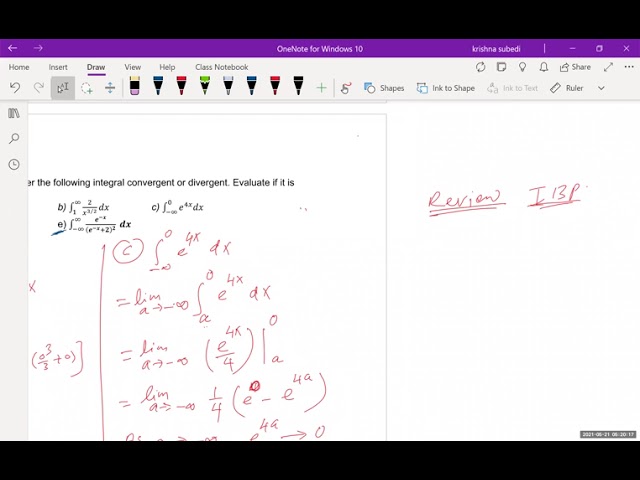 OneNote for Windows 10
krishna subedi
Home Insert Draw View Help Class Notebook Share
Shapes Ink to Shape Ink to Text Ruler
er the following integral convergent or divergent. Evaluate if it is
b) ∫₁^∞ 2/x^{3/2} dx c) ∫_{-∞}^0 e^{4x} dx
e) ∫_{-∞}^∞ e^{-x}/(e^{-x}+2)² dx
Review IBP
c ∫_{-∞}^0 e^{4x} dx
= lim_{a→-∞} ∫_a^0 e^{4x} dx
x
= lim_{a→-∞} (e^{4x}/4) |_a^0
(0³/3 + 0)]
= lim_{a→-∞} 1/4 (e^0 - e^{4a})
e^{4a} → 0
2021-06-21 06:30:17